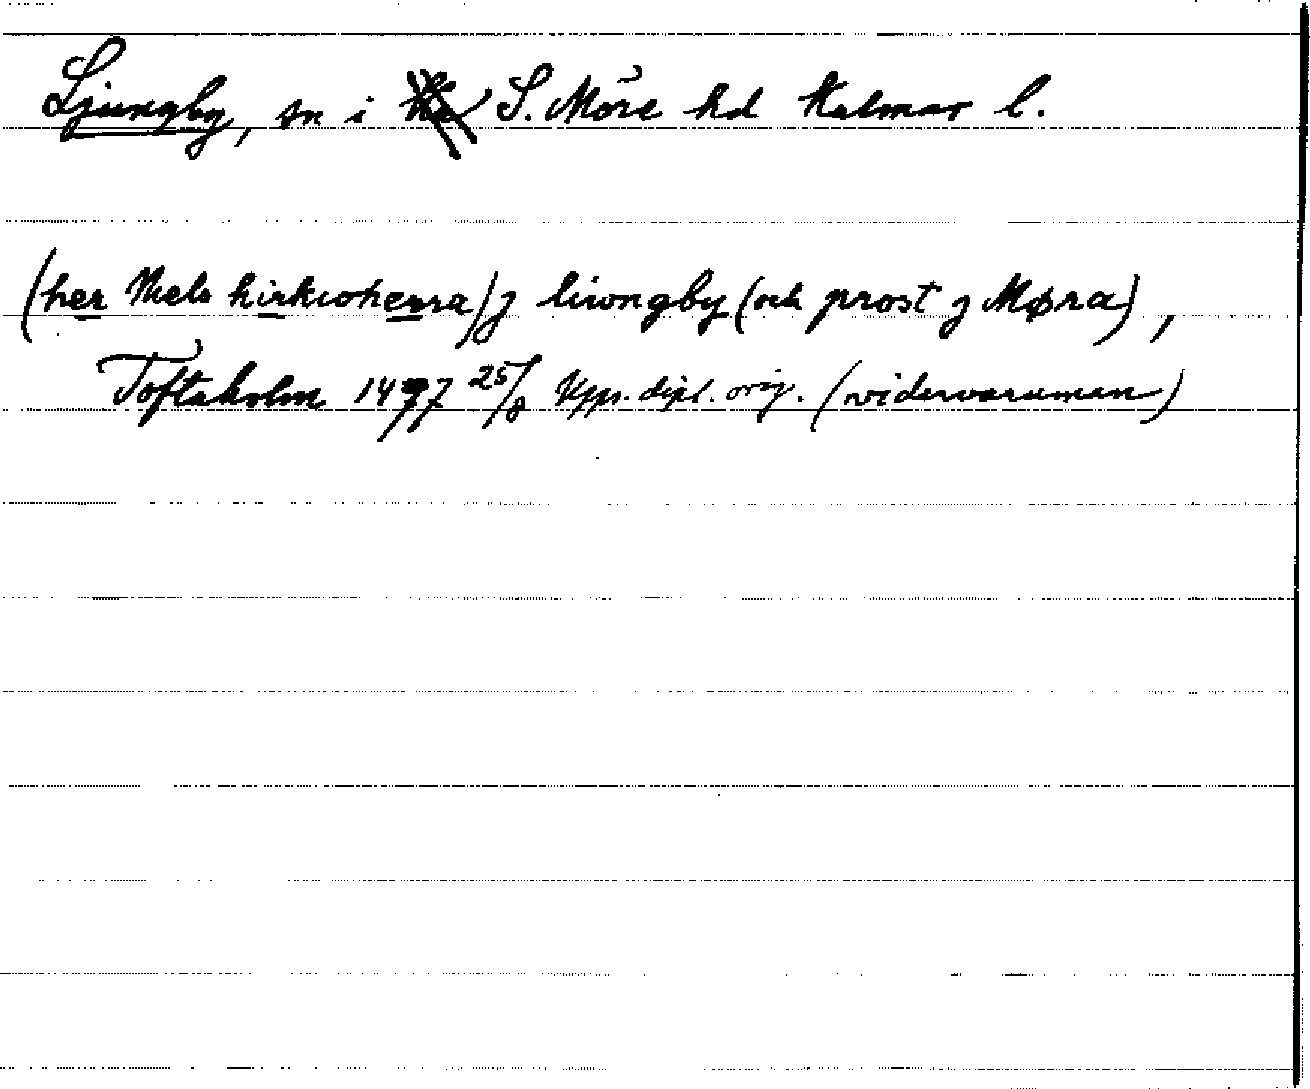 Ljungby, sn i S. Möre hd Kalmar l.
(her Niels kirkioherra) j liwngby (och prost j Møra),
Toftaholm 1497 25/8 Upps. dipl. orig. (widervaruman)